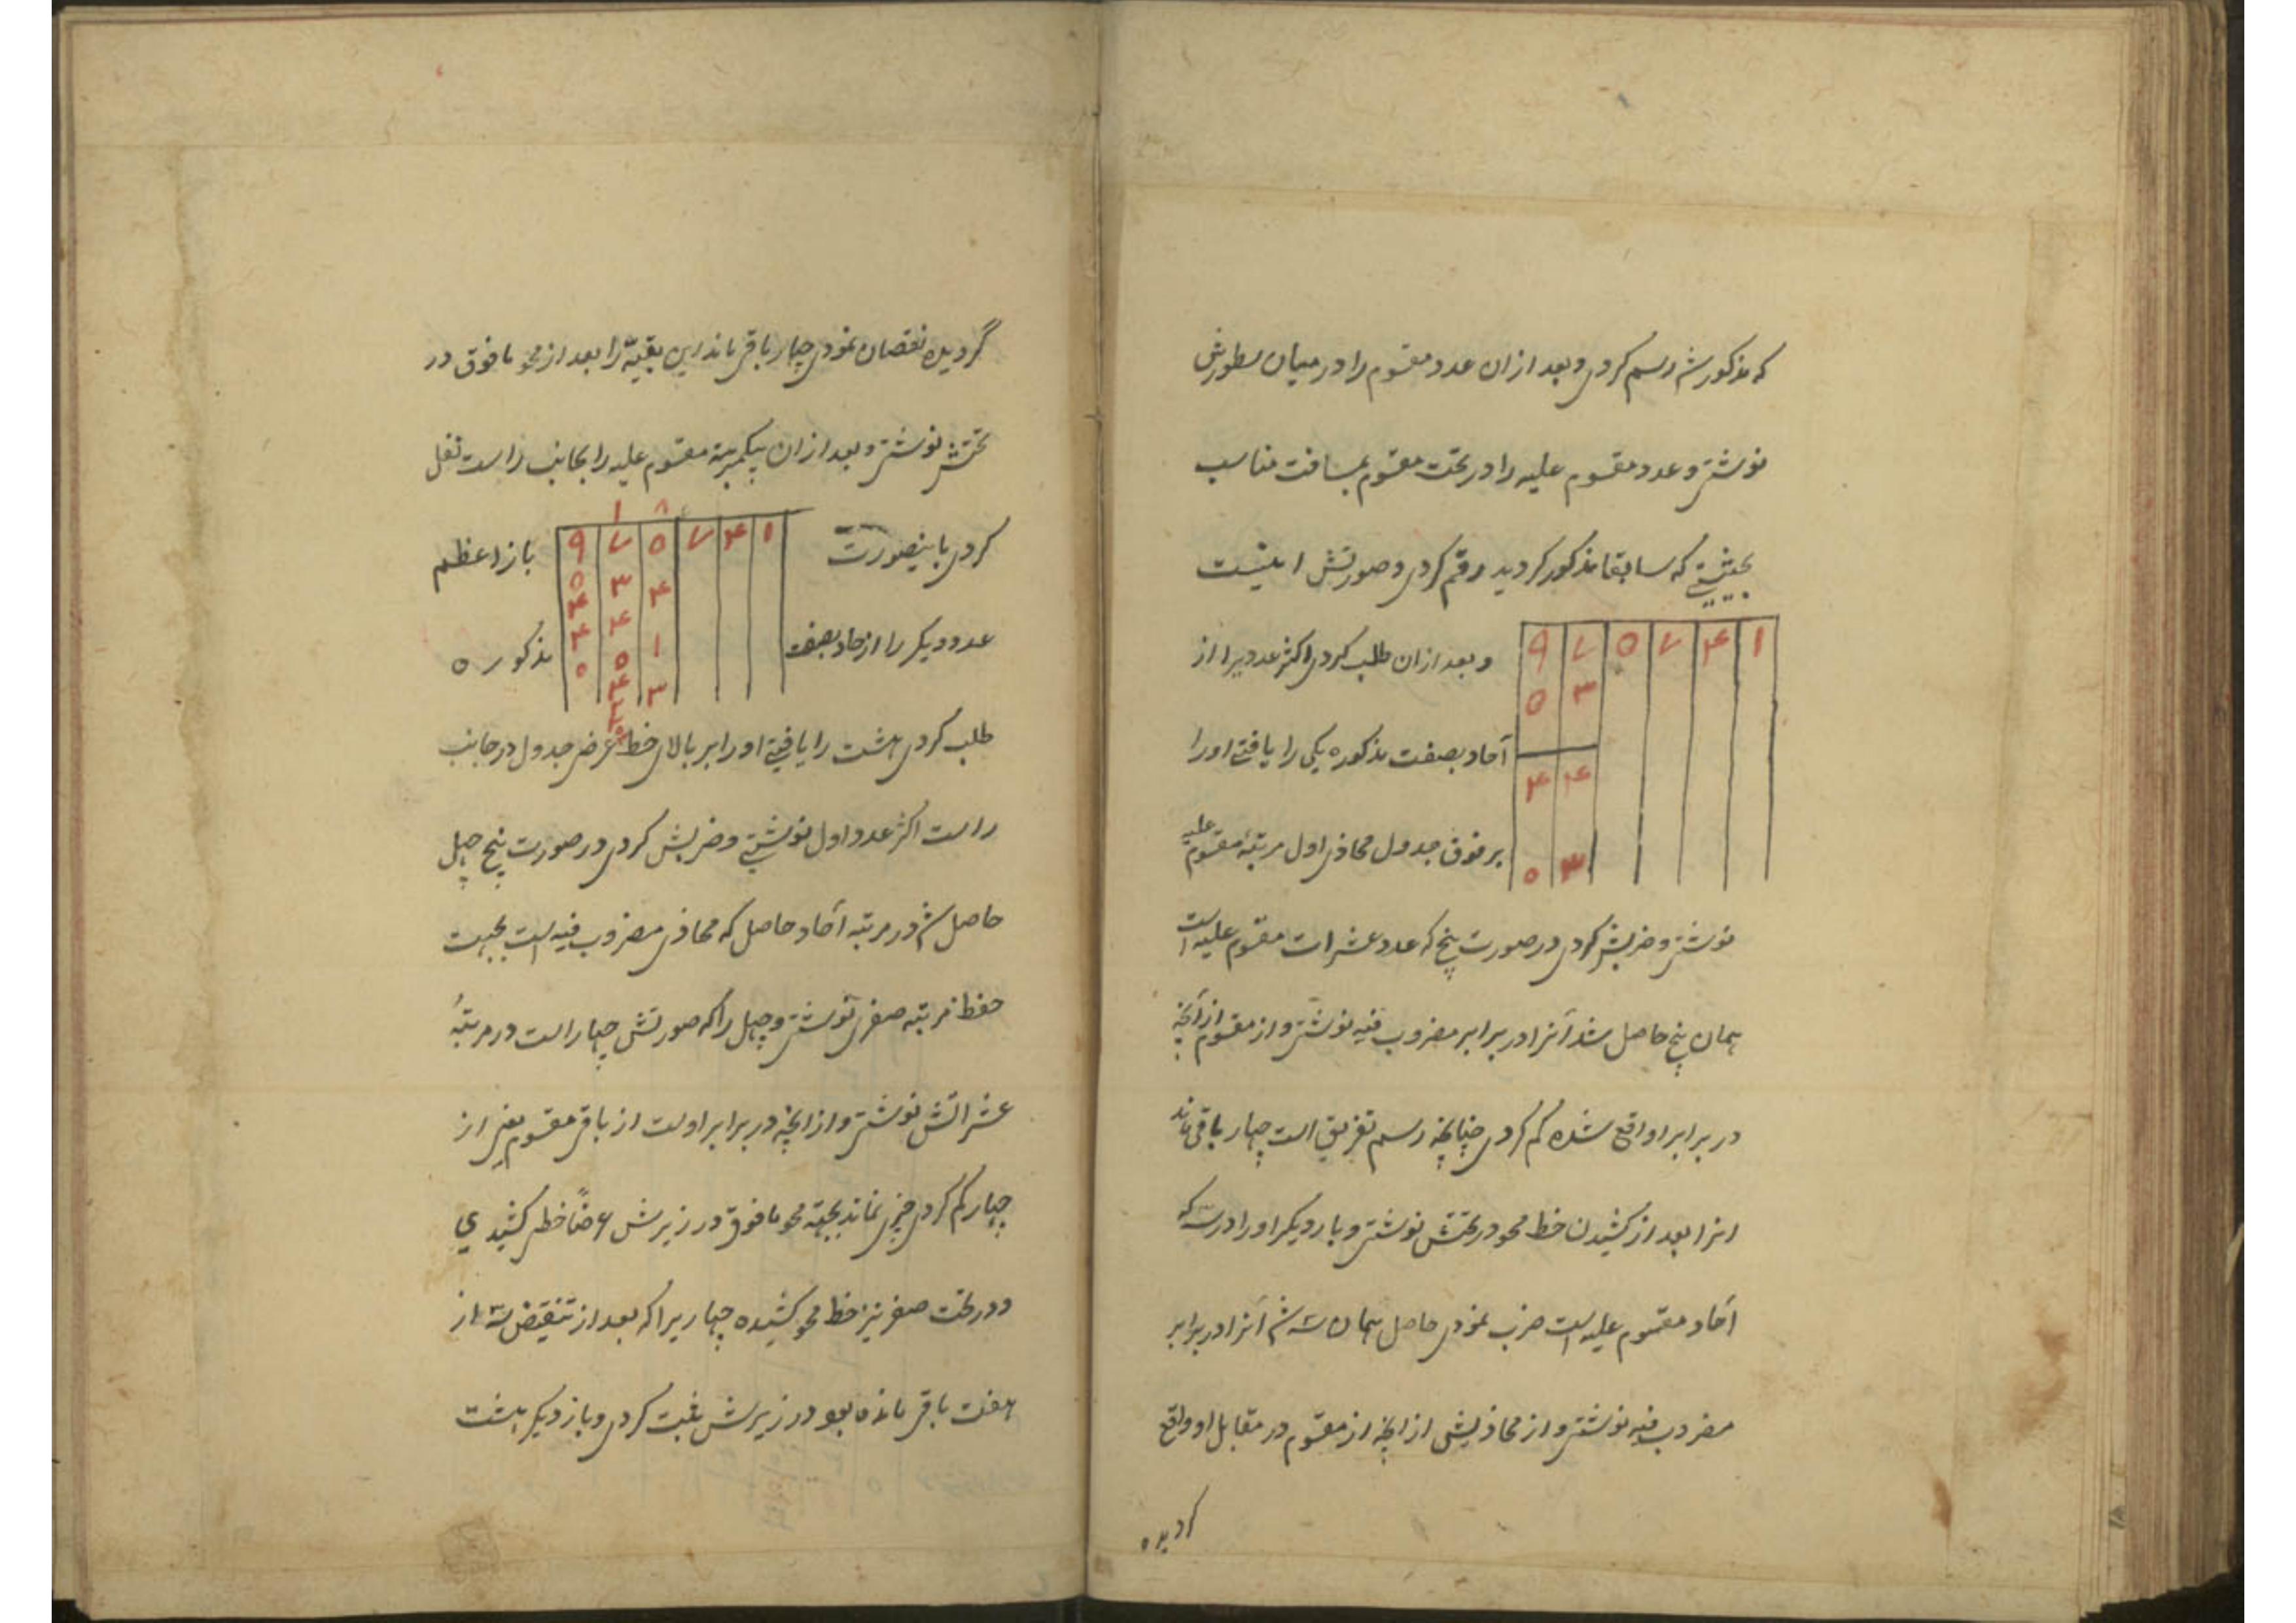 که مذکور شد رسم کردی و بعد از ان عدد مقسوم را در میان سطورش
نوشتی و عدد مقسوم علیه را در تحت مقسوم بمسافت مناسب
بحیثیتی که سابقا مذکور کردید رقم کردی و صورتش اینست
۹ ۷ ۵ ۷ ۴ ۱
و بعد از ان طلب کردی اکثر عددیرا از
۵ ۳
آحاد بصفت مذکوره یکی را یافتی او را
۴ ۴
بر فوق جدول محاذی اول مرتبهٔ مقسوم علیه
۵ ۳
نوشتی و ضربش کردی در صورت پنج که عدد عشرات مقسوم علیه است
همان پنج حاصل شد آنرا در برابر مضروب فیه نوشتی و از مقسوم از آنچه
در برابر او واقع شده کم کردی چنانچه رسم تفریق است چهار باقی ماند
انرا بعد از کشیدن خط محو در تحتش نوشتی و بار دیکر او را در سه که
آحاد مقسوم علیه است ضرب نمودی حاصل همان سه شد آنرا در برابر
مضروب فیه نوشتی و از محاذیش از انچه از مقسوم در مقابل او واقع
کردیده
گردیده نقصان نمودی چهار باقی ماند این بقیّه را بعد از محو ما فوق در
تحتش نوشتی و بعد از ان بیکمرتبه مقسوم علیه را بجانب راست نقل
کردی باینصورت
۱ ۸
۹ ۷ ۵ ۷ ۴ ۱
باز اعظم
۵ ۳ ۴
۴ ۴
عدد دیکر را از آحاد بصفت
۴ ۵ ۱
مذکوره
۵ ۴ ۳
طلب کردی هشت را یافتی او را بر بالای خط عرض جدول در جانب
راست اکثر عدد اول نوشتی و ضربش کردی در صورت پنج چهل
حاصل شد در مرتبه آحاد حاصل که محاذی مضروب فیه است بجهت
حفظ مرتبه صفری نوشتی و چهل را که صورتش چهار است در مرتبهٔ
عشراتش نوشتی و از انچه در برابر اوست از باقی مقسوم یعنی از
چهار کم کردی چیزی نماند بجهة محو ما فوق در زیرش عرضاً خطی کشیدی
و در تحت صفر نیز خط محو کشیده چهاریرا که بعد از تنقیض سه از
هفت باقی مانده بود در زیرش ثبت کردی و باز دیکر هشت